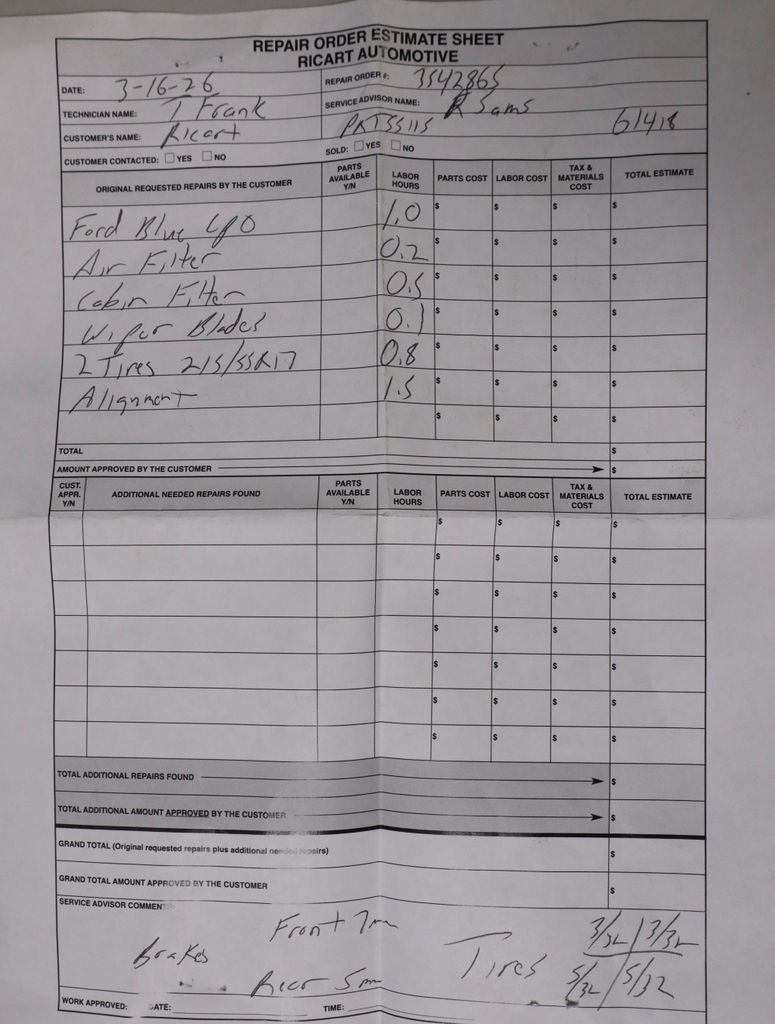 REPAIR ORDER ESTIMATE SHEET
RICART AUTOMOTIVE
DATE: 3-16-26 REPAIR ORDER #: 3542865
TECHNICIAN NAME: T Frank SERVICE ADVISOR NAME: R Sams
CUSTOMER'S NAME: Ricart PRTSS115 61418
CUSTOMER CONTACTED: ☐ YES ☐ NO SOLD: ☐ YES ☐ NO
ORIGINAL REQUESTED REPAIRS BY THE CUSTOMER PARTS AVAILABLE Y/N LABOR HOURS PARTS COST LABOR COST TAX & MATERIALS COST TOTAL ESTIMATE
Ford Blue 1.0 $ $ $ $
Air Filter 0.2 $ $ $ $
Cabin Filter 0.5 $ $ $ $
Wiper Blades 0.1 $ $ $ $
2 Tires 215/55R17 0.8 $ $ $ $
Alignment 1.5 $ $ $ $
$ $ $ $
TOTAL $
AMOUNT APPROVED BY THE CUSTOMER $
CUST. APPR. Y/N ADDITIONAL NEEDED REPAIRS FOUND PARTS AVAILABLE Y/N LABOR HOURS PARTS COST LABOR COST TAX & MATERIALS COST TOTAL ESTIMATE
$ $ $ $
$ $ $ $
$ $ $ $
$ $ $ $
$ $ $ $
$ $ $ $
$ $ $ $
TOTAL ADDITIONAL REPAIRS FOUND $
TOTAL ADDITIONAL AMOUNT APPROVED BY THE CUSTOMER $
GRAND TOTAL (Original requested repairs plus additional needed repairs) $
GRAND TOTAL AMOUNT APPROVED BY THE CUSTOMER $
SERVICE ADVISOR COMMENT
Front 7mm 3/32 | 3/32
Brakes Tires
Rear 5mm 5/32 | 5/32
WORK APPROVED: DATE: TIME: